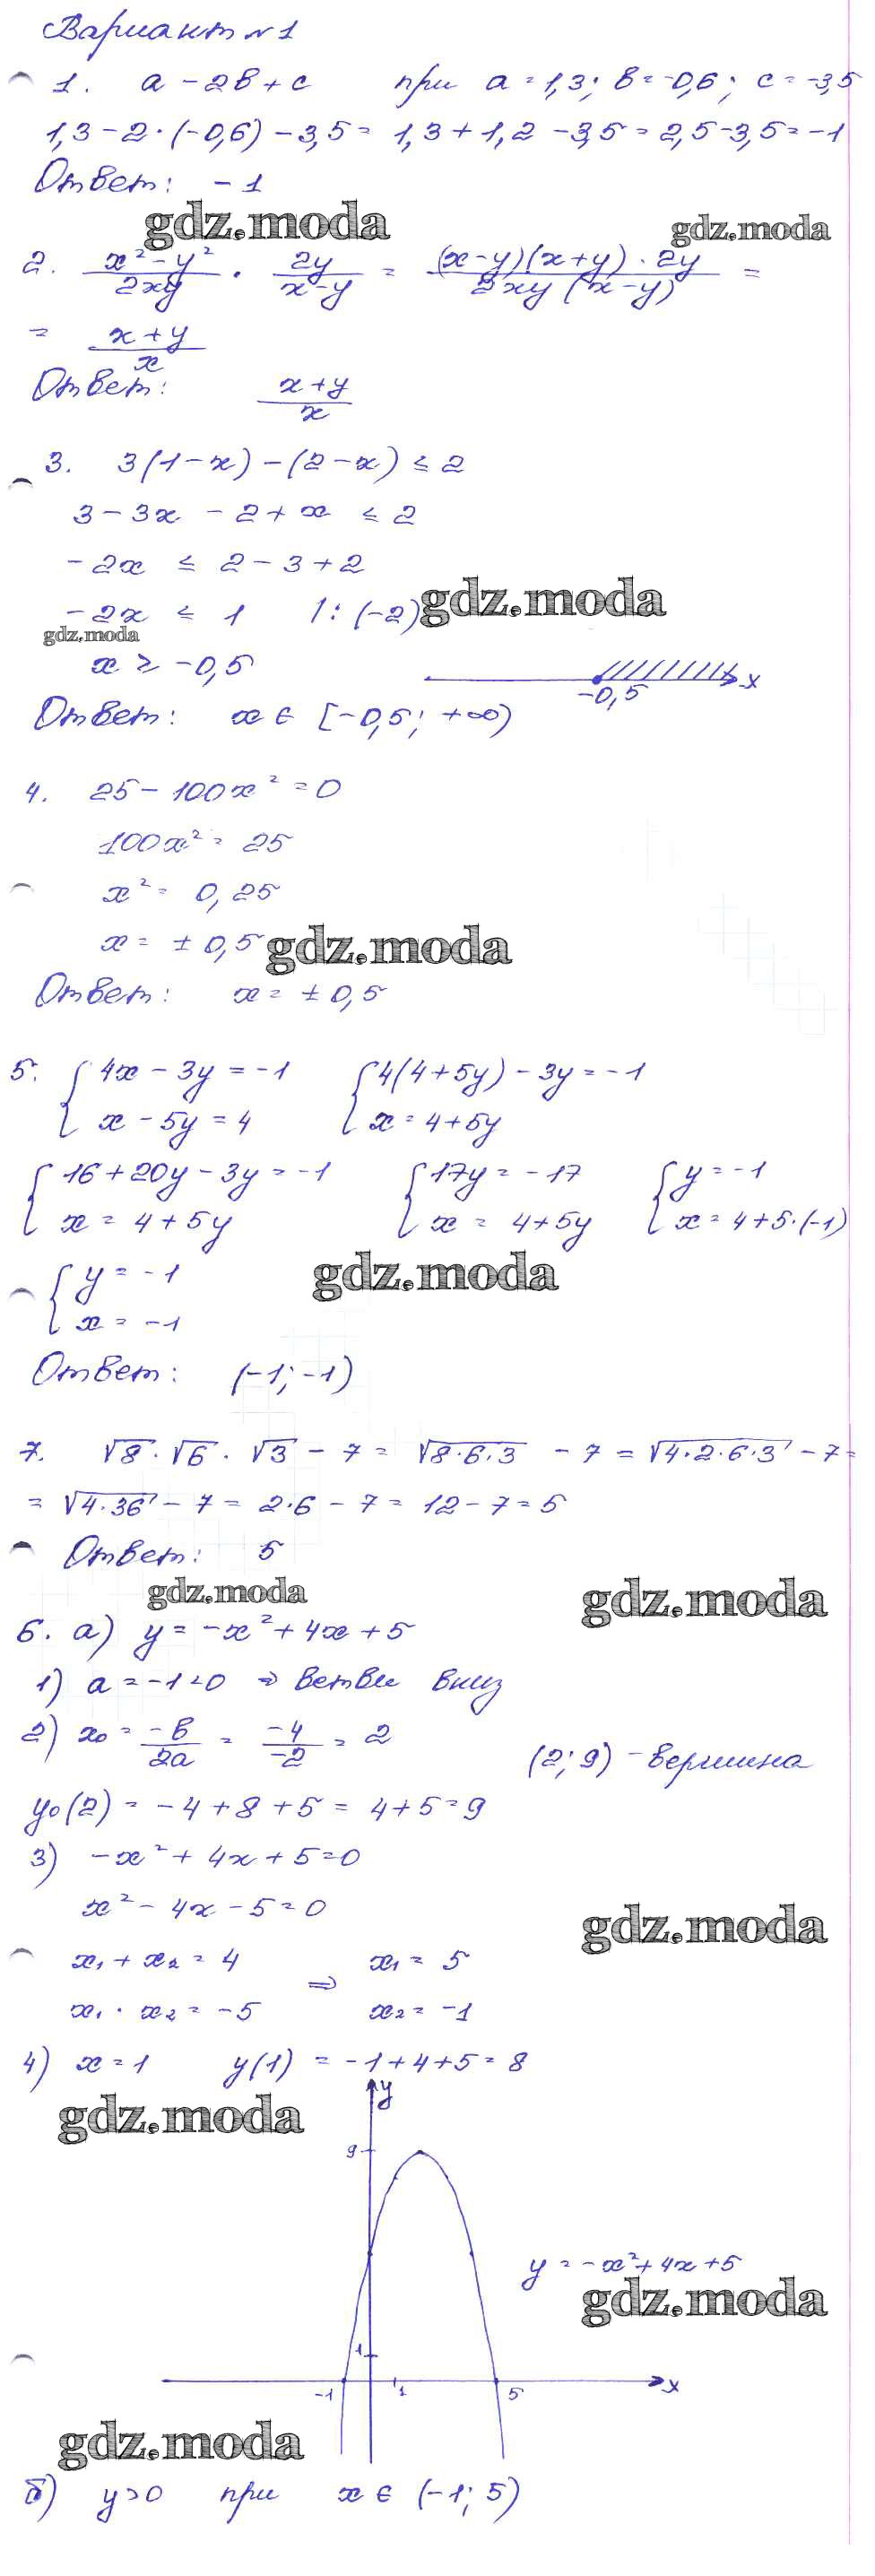 Вариант №1
1. a - 2в + c при a = 1,3; в = -0,6; c = -3,5
1,3 - 2·(-0,6) - 3,5 = 1,3 + 1,2 - 3,5 = 2,5 - 3,5 = -1
Ответ: -1
gdz.moda gdz.moda
2. (x² - y²)/(2xy) · 2y/(x - y) = ((x-y)(x+y)·2y)/(2xy(x-y)) =
= (x+y)/x
Ответ: (x+y)/x
3. 3(1-x) - (2-x) ≤ 2
3 - 3x - 2 + x ≤ 2
-2x ≤ 2 - 3 + 2
-2x ≤ 1 |: (-2) gdz.moda
gdz.moda
x ≥ -0,5 -0,5 x
Ответ: x ∈ [-0,5; +∞)
4. 25 - 100x² = 0
100x² = 25
x² = 0,25
x = ± 0,5 gdz.moda
Ответ: x = ± 0,5
5. { 4x - 3y = -1 { 4(4+5y) - 3y = -1
x - 5y = 4 x = 4+5y
{ 16 + 20y - 3y = -1 { 17y = -17 { y = -1
x = 4 + 5y x = 4+5y x = 4+5·(-1)
{ y = -1 gdz.moda
x = -1
Ответ: (-1; -1)
7. √8 · √6 · √3 - 7 = √(8·6·3) - 7 = √(4·2·6·3) - 7 =
= √(4·36) - 7 = 2·6 - 7 = 12 - 7 = 5
Ответ: 5
gdz.moda gdz.moda
6. a) y = -x² + 4x + 5
1) a = -1 < 0 ⇒ ветви вниз
2) x₀ = -в/2a = -4/-2 = 2
(2; 9) - вершина
y₀(2) = -4 + 8 + 5 = 4 + 5 = 9
3) -x² + 4x + 5 = 0
x² - 4x - 5 = 0
gdz.moda
x₁ + x₂ = 4 ⇒ x₁ = 5
x₁ · x₂ = -5 x₂ = -1
4) x = 1 y(1) = -1+4+5 = 8
y
gdz.moda
9
y = -x² + 4x + 5
gdz.moda
1
-1 1 5 x
gdz.moda
б) y > 0 при x ∈ (-1; 5)